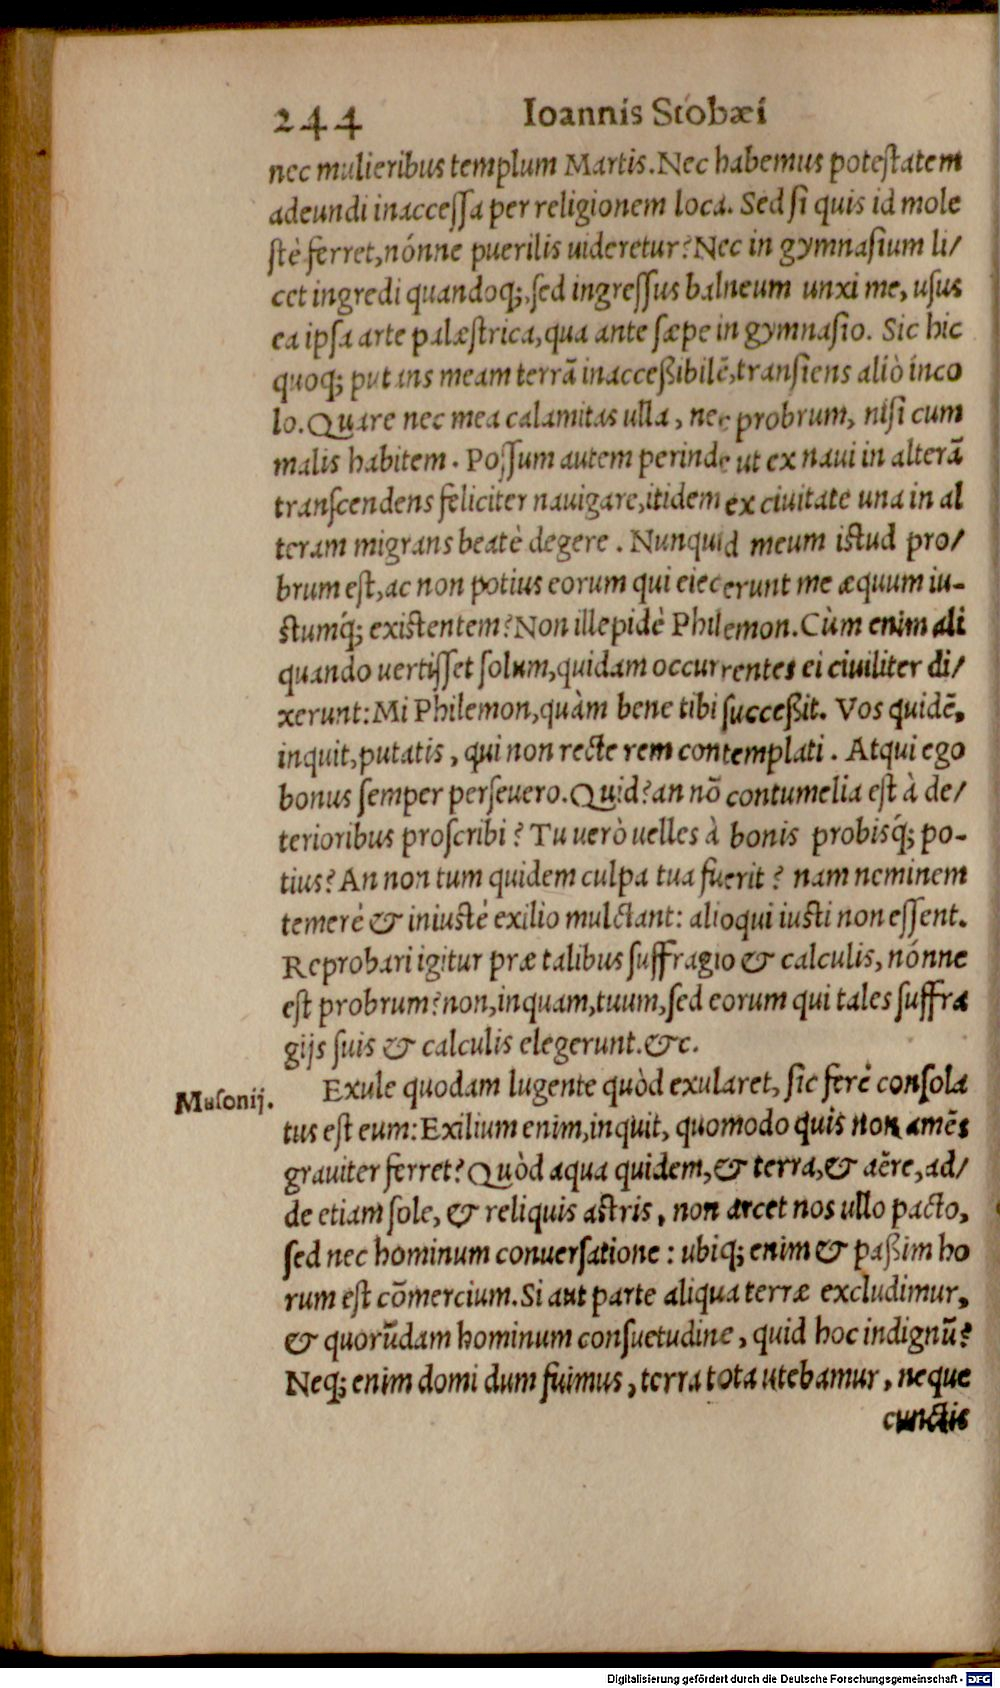 244 Ioannis Stobæi
nec mulieribus templum Martis. Nec habemus potestatem
adeundi inaccessa per religionem loca. Sed si quis id mole
stè ferret, nónne puerilis uideretur? Nec in gymnasium li/
cet ingredi quandoq;, sed ingressus balneum unxi me, usus
ea ipsa arte palæstrica, qua ante sæpe in gymnasio. Sic hic
quoq; putans meam terrā inacceßibilē, transiens aliò inco
lo. Quare nec mea calamitas ulla, nec probrum, nisi cum
malis habitem. Possum autem perinde ut ex naui in alterā
transcendens feliciter nauigare, itidem ex ciuitate una in al
teram migrans beatè degere. Nunquid meum istud pro/
brum est, ac non potius eorum qui eiecerunt me æquum iu-
stumq́; existentem? Non illepidè Philemon. Cùm enim ali
quando uertisset solum, quidam occurrentes ei ciuiliter di/
xerunt: Mi Philemon, quàm bene tibi succeßit. Vos quidē,
inquit, putatis, qui non recte rem contemplati. Atqui ego
bonus semper perseuero. Quid? an nō contumelia est à de/
terioribus proscribi? Tu uerò uelles à bonis probisq́; po-
tius? An non tum quidem culpa tua fuerit? nam neminem
temerè & iniustè exilio mulctant: alioqui iusti non essent.
Reprobari igitur præ talibus suffragio & calculis, nónne
est probrum? non, inquam, tuum, sed eorum qui tales suffra
gijs suis & calculis elegerunt. &c.
Musonij. Exule quodam lugente quòd exularet, sic ferè consola
tus est eum: Exilium enim, inquit, quomodo quis non amēs
grauiter ferret? Quòd aqua quidem, & terra, & aëre, ad/
de etiam sole, & reliquis astris, non arcet nos ullo pacto,
sed nec hominum conuersatione: ubiq; enim & paßim ho
rum est cōmercium. Si aut parte aliqua terræ excludimur,
& quorūdam hominum consuetudine, quid hoc indignū?
Neq; enim domi dum fuimus, terra tota utebamur, neque
cunctis
Digitalisierung gefördert durch die Deutsche Forschungsgemeinschaft - DFG